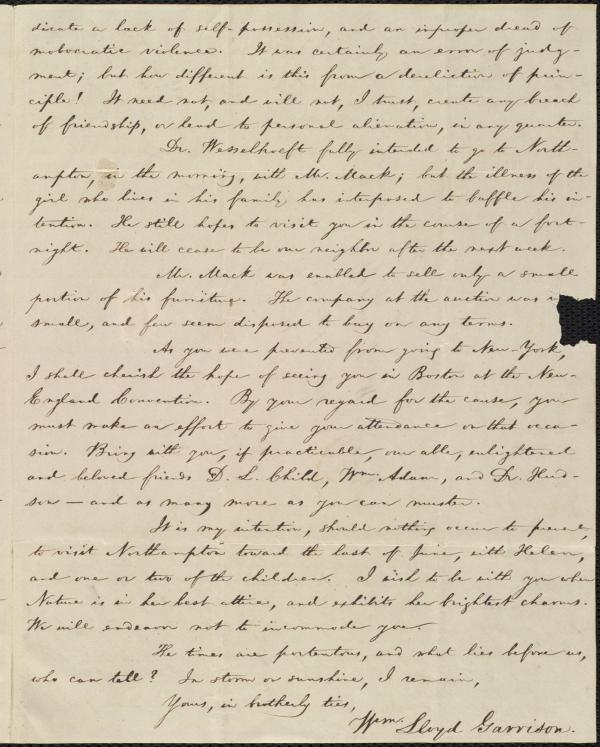 dicate a lack of self-possession, and an improper dread of
mobocratic violence. It was certainly an error of judg-
ment; but how different is this from a dereliction of prin-
ciple! It need not, and will not, I trust, create any breach
of friendship, or lead to personal alienation, in any quarter.
Dr. Wesselhoeft fully intended to go to North-
ampton, in the morning, with Mr. Mack; but the illness of the
girl who lives in his family has interposed to baffle his in-
tention. He still hopes to visit you in the course of a fort-
night. He will cease to be our neighbor after the next week.
Mr. Mack was enabled to sell only a small
portion of his furniture. The company at the auction was
small, and few seem disposed to buy on any terms.
As you were prevented from going to New-York,
I shall cherish the hope of seeing you in Boston at the New-
England Convention. By your regard for the cause, you
must make an effort to give your attendance on that occa-
sion. Bring with you, if practicable, our able, enlightened
and beloved friends D. L. Child, Wm. Adam, and Dr. Hud-
son — and as many more as you can muster.
It is my intention, should nothing occur to prevent,
to visit Northampton toward the last of June, with Helen,
and one or two of the children. I wish to be with you when
Nature is in her best attire, and exhibits her brightest charms.
We will endeavor not to incommode you.
The times are portentous, and what lies before us,
who can tell? In storm or sunshine, I remain,
Yours, in brotherly ties,
Wm. Lloyd Garrison.